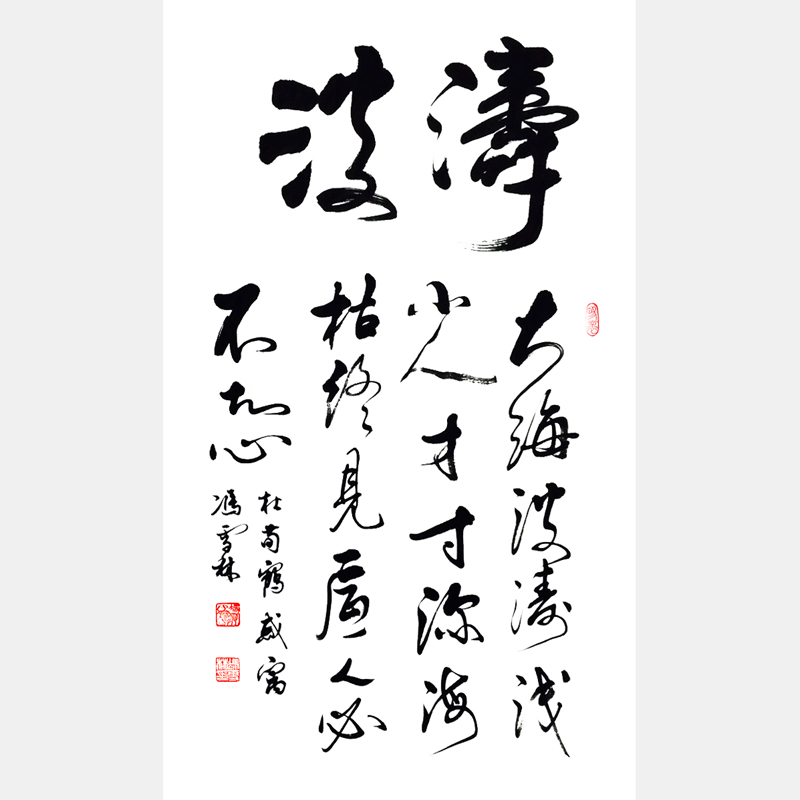 波濤
大海波涛浅
小人方寸深海
枯终見底人死
不知心
杜荀鶴感寓
馮雪林